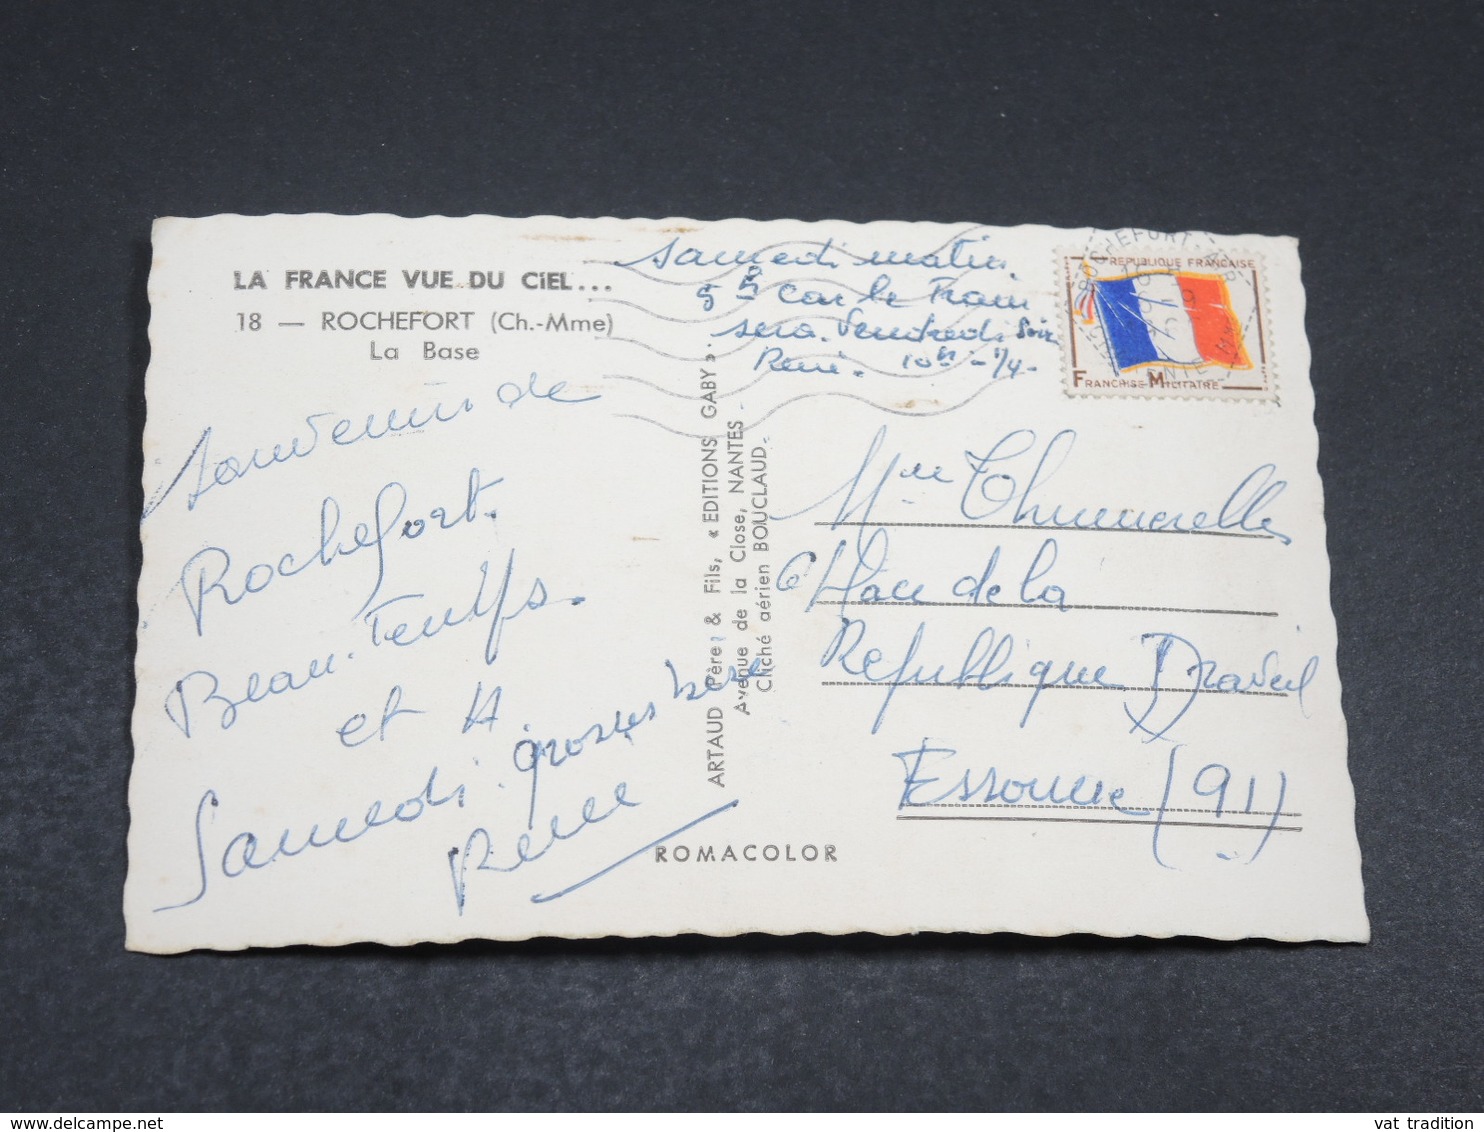 LA FRANCE VUE DU CiEL...
18 — ROCHEFORT (Ch.-Mme)
La Base
Souvenir de
Rochefort.
Beau-Temps.
et A
Samedi. grosses bises
René
samedi matin.
5h car le Train
sera Vendredi Soir
René. 10h - 1/4-
ARTAUD Père & Fils, « EDITIONS GABY ».
Avenue de la Close, NANTES
Cliché aérien BOUCLAUD.
ROMACOLOR
REPUBLIQUE FRANÇAISE
FRANCHISE MILITAIRE
ROCHEFORT
Mme Thumerelle
6 Place de la
République Draveil
Essonne (91)
vat tradition